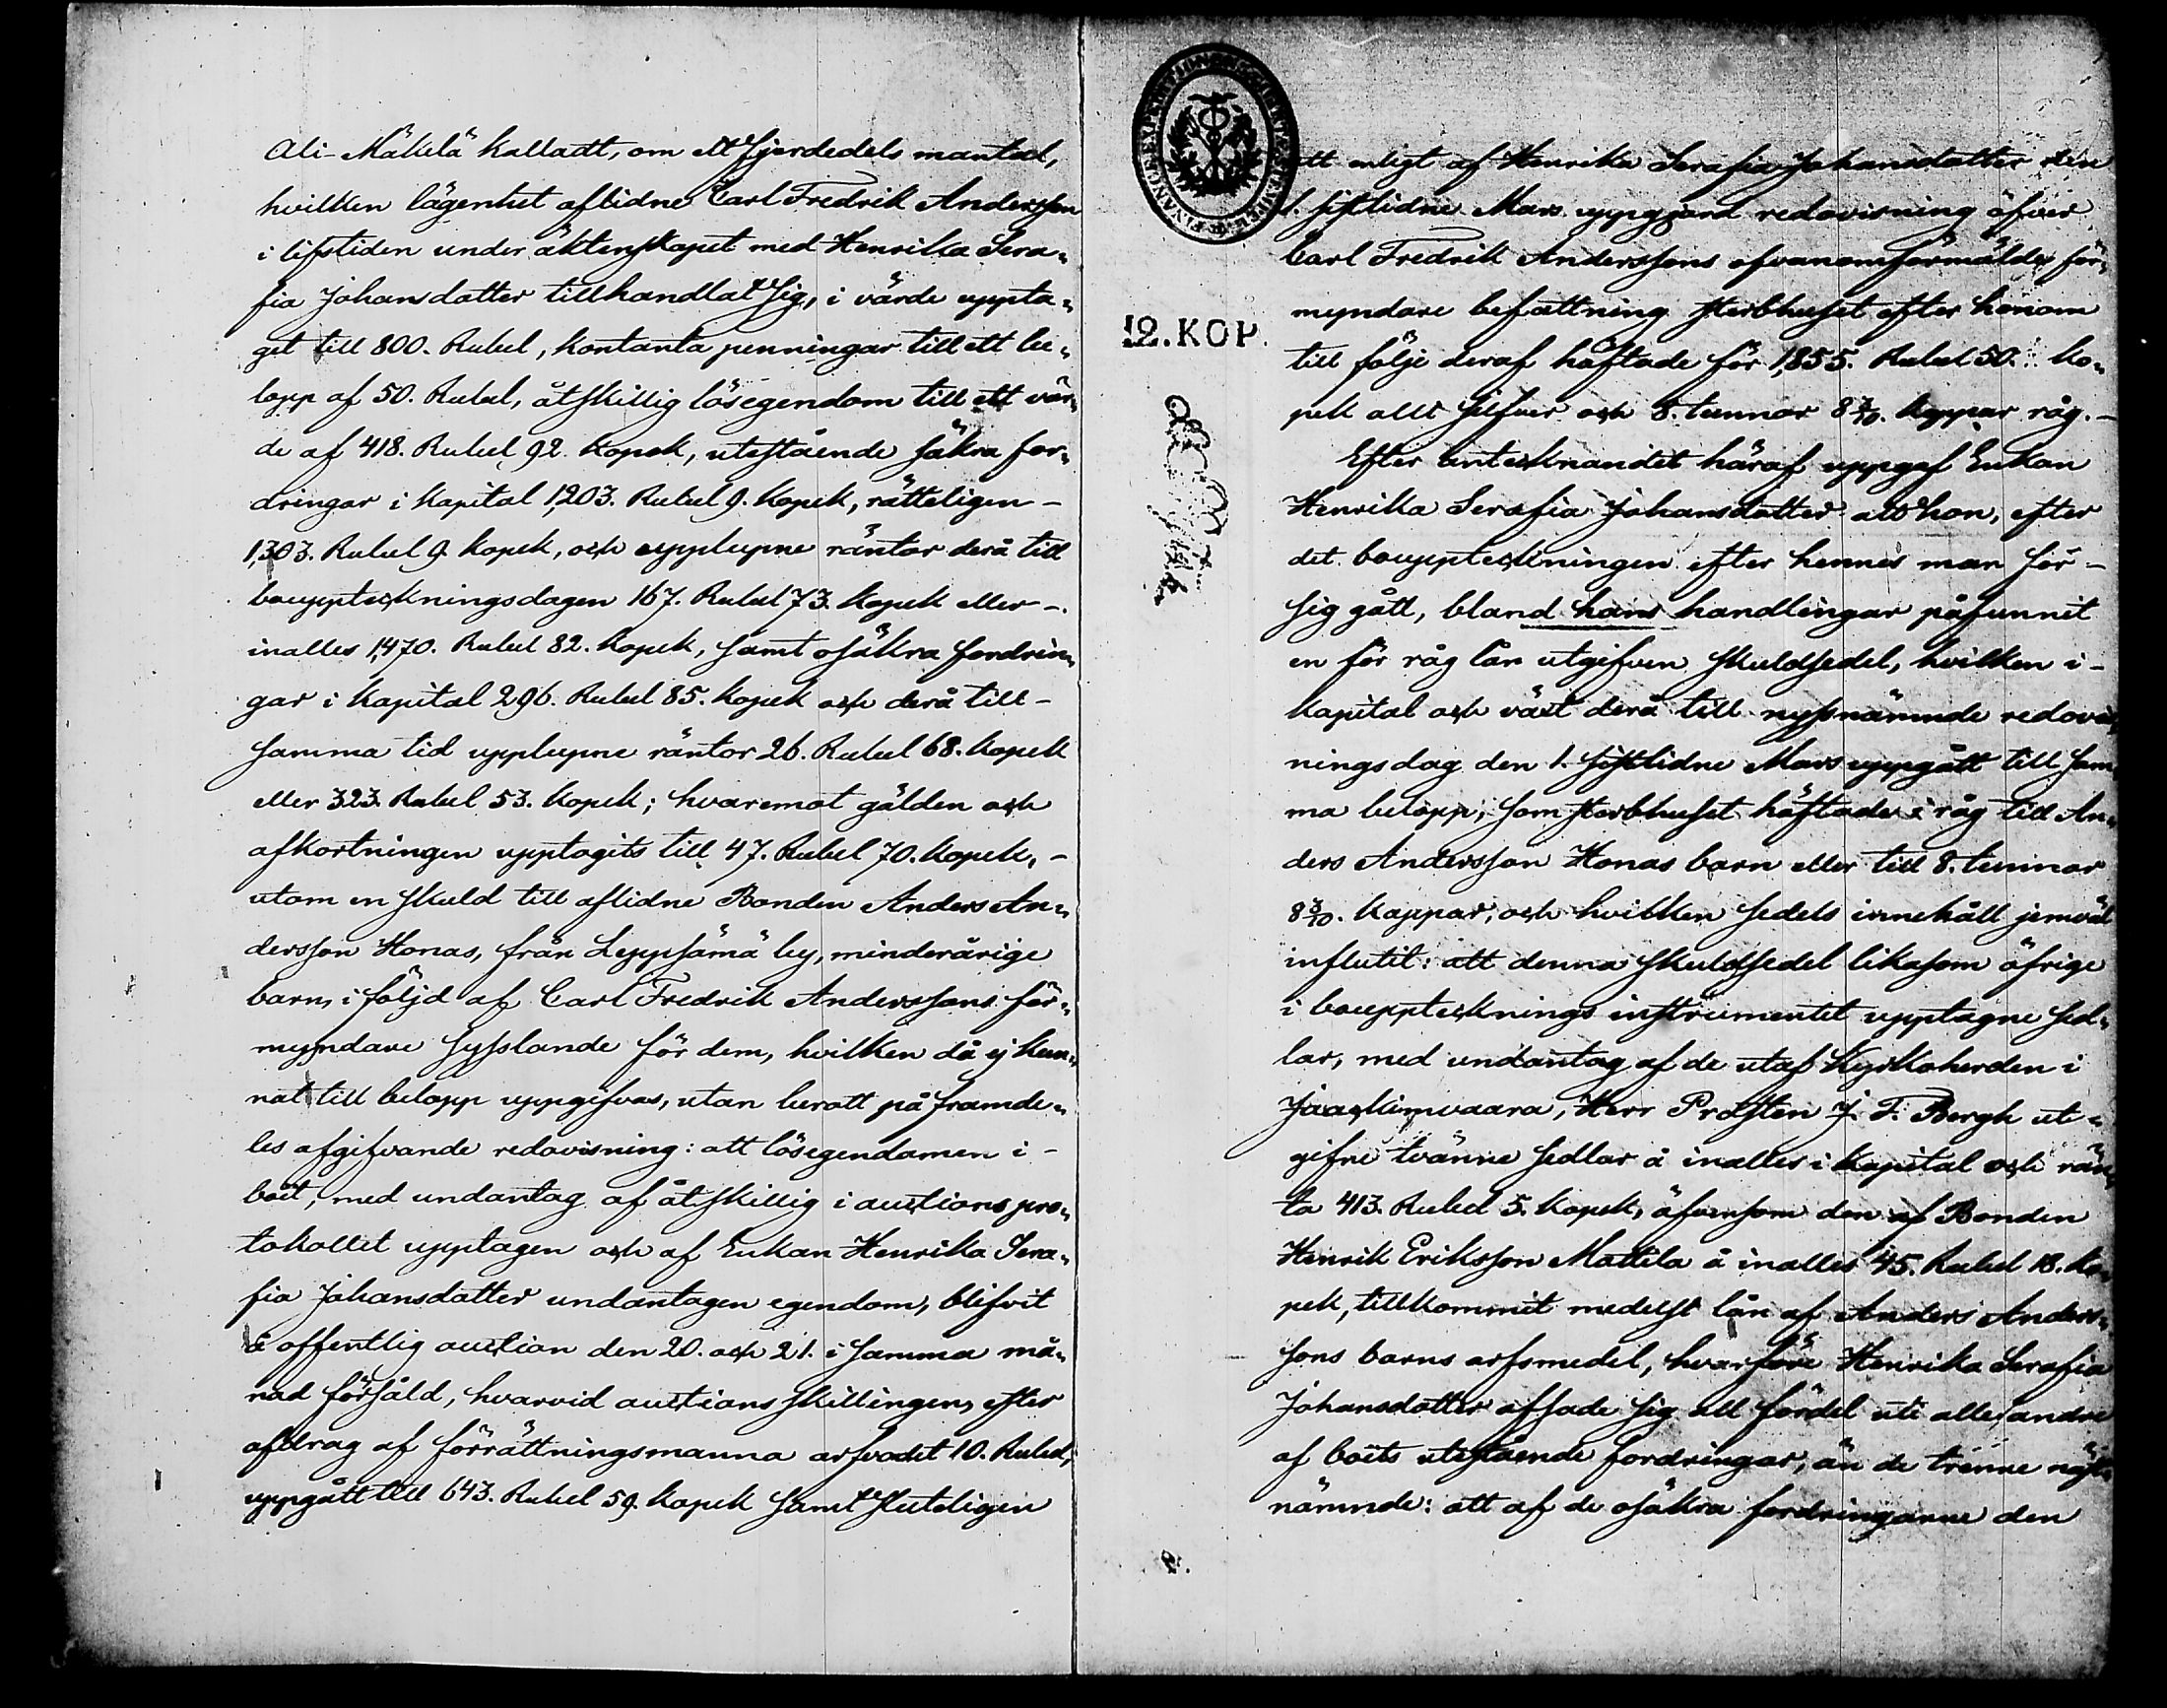 Ali-Mäkelä kalladt, om ett fjerdedels mantal,
hvilken lägenhet aflidne Carl Fredrik Andersson
i lifstiden under äktenskapet med Henrika Sera„
fia Johansdotter tillhandlat sig, i värde uppta„
get till 800. Rubel, kontanta penningar till ett be„
lopp af 50. Rubel, åtskillig lösegendom till ett vär„
de af 418. Rubel 92. Kopek, utestående säkra for„
dringar i kapital 1,203. Rubel 9. Kopek, rätteligen –
1,303. Rubel 9. kopek, och upplupne räntor derå till
bouppteckningsdagen 167. Rubel 73. Kopek eller –
inalles 1,470. Rubel 82. Kopek, samt osäkra fordrin„
gar i kapital 296. Rubel 85. Kopek och derå till –
samma tid upplupne räntor 26. Rubel 68. Kopek
eller 323. Rubel 53. Kopek; hvaremot gälden och
afkortningen upptagits till 47. Rubel 70. Kopek, –
utom en skuld till aflidne Bonden Anders An„
dersson Honas, från Leppsämä by, minderårige
barn, i följd af Carl Fredrik Anderssons för„
myndare sysslande för dem, hvilken då ej kun„
nat till belopp uppgifvas, utan berott på framde„
les afgifvande redovisning: att lösegendomen i –
boet, med undantag af åtskillig i auctions pro„
tokollet upptagen och af Enkan Henrika Sera„
fia Johansdotter undantagen egendom, blifvit
å offentlig auction den 20. och 21. i samma må„
nad försåld, hvarvid auctions skillingen, efter
afdrag af förrättningsmanna arfvodet 10. Rubel,
uppgått till 643. Rubel 59. Kopek samt sluteligen
att enligt af Henrika Serafia Johansdotter den
1. sistlidne Mars uppgjord redovisning öfver
Carl Fredrik Anderssons ofvanomförmälde för„
myndare befattning sterbhuset efter honom
12. KOP.
till följe deraf häftade för 1,855. Rubel 50. ko„
pek allt silfver och 8. tunnor 8 3/10. kappar råg. –
Efter antecknandet häraf uppgaf Enkan
Henrika Serafia Johansdotter att hon, efter
det bouppteckningen efter hennes man för –
sig gått, bland hans handlingar påfunnit
en för råg lån utgifven skuldsedel, hvilken i –
kapital och växt derå till nyssnämnde redovis„
ningsdag den 1. sistlidne Mars uppgått till sam„
ma belopp, som sterbhuset häftade i råg till An„
ders Andersson Honas barn eller till 8. tunnor
8 3/10. kappar, och hvilken sedels innehåll jemväl
influtit: att denna skuldsedel likasom öfrige
i bouppteckningsinstrumentet upptagne sed„
lar, med undantag af de utaf Kyrkoherden i
Jaakimvaara, Herr Prosten J. F. Bergh ut„
gifne tvänne sedlar å inalles i kapital och rän„
ta 413. Rubel 5. Kopek, äfvensom den af Bonden
Henrik Eriksson Mattila å inalles 45. Rubel 18. Ko„
pek, tillkommit medelst lån af Anders Anders„
sons barns arfsmedel, hvarföre Henrika Serafia
Johansdotter afsade sig all fördel uti alla andra
af boets utestående fordringar, än de trenne nyss
nämnde: att af de osäkra fordringarne den